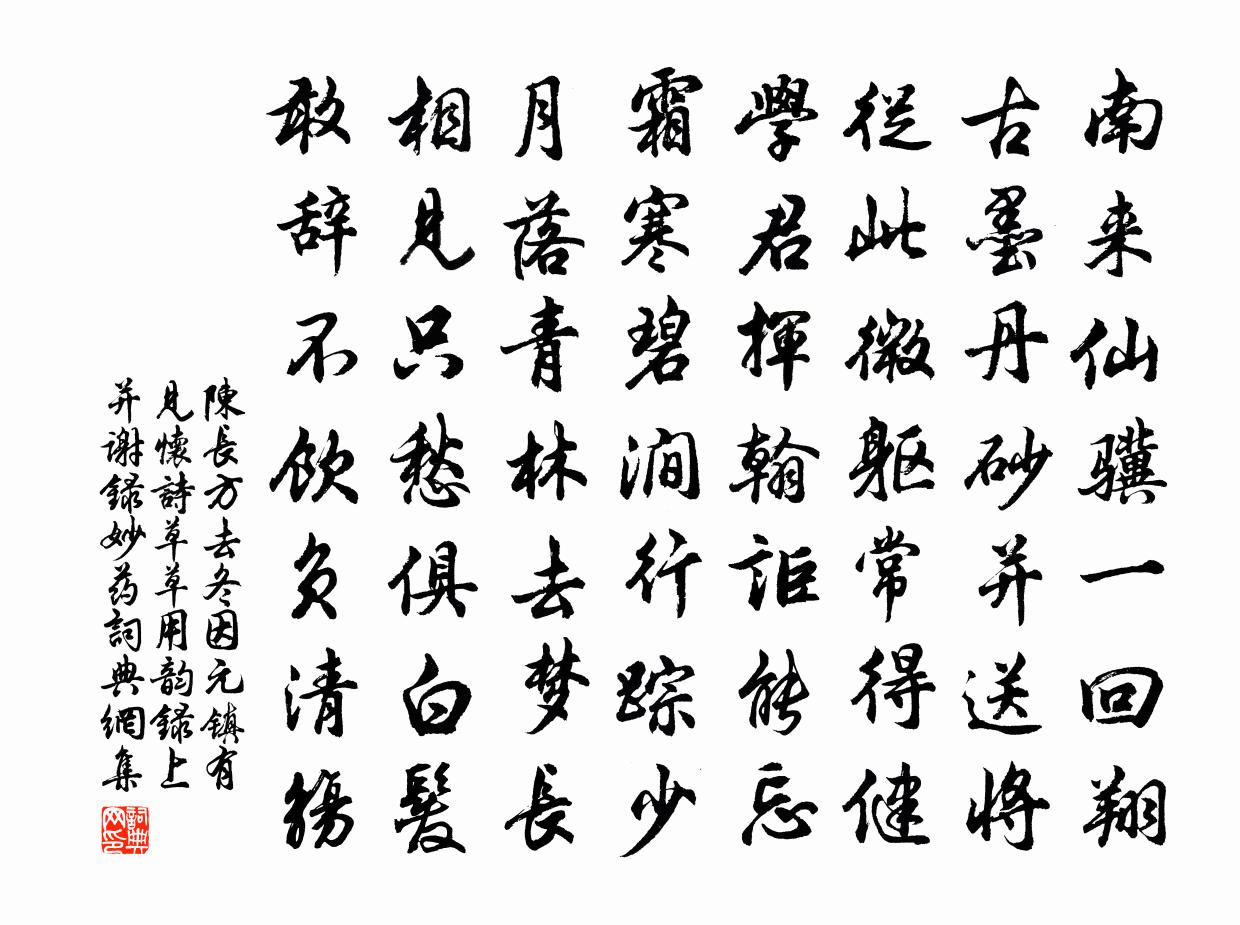 南来仙骥一回翔
古墨丹砂并送将
從此微躯常得健
學君揮翰詎能忘
霜寒碧澗行踪少
月落青林去梦長
相見只愁俱白髮
敢辞不飲负清觴
陳長方去冬因元镇有
見懷詩草草用韵録上
并谢録妙药詞典網集
詞典网印